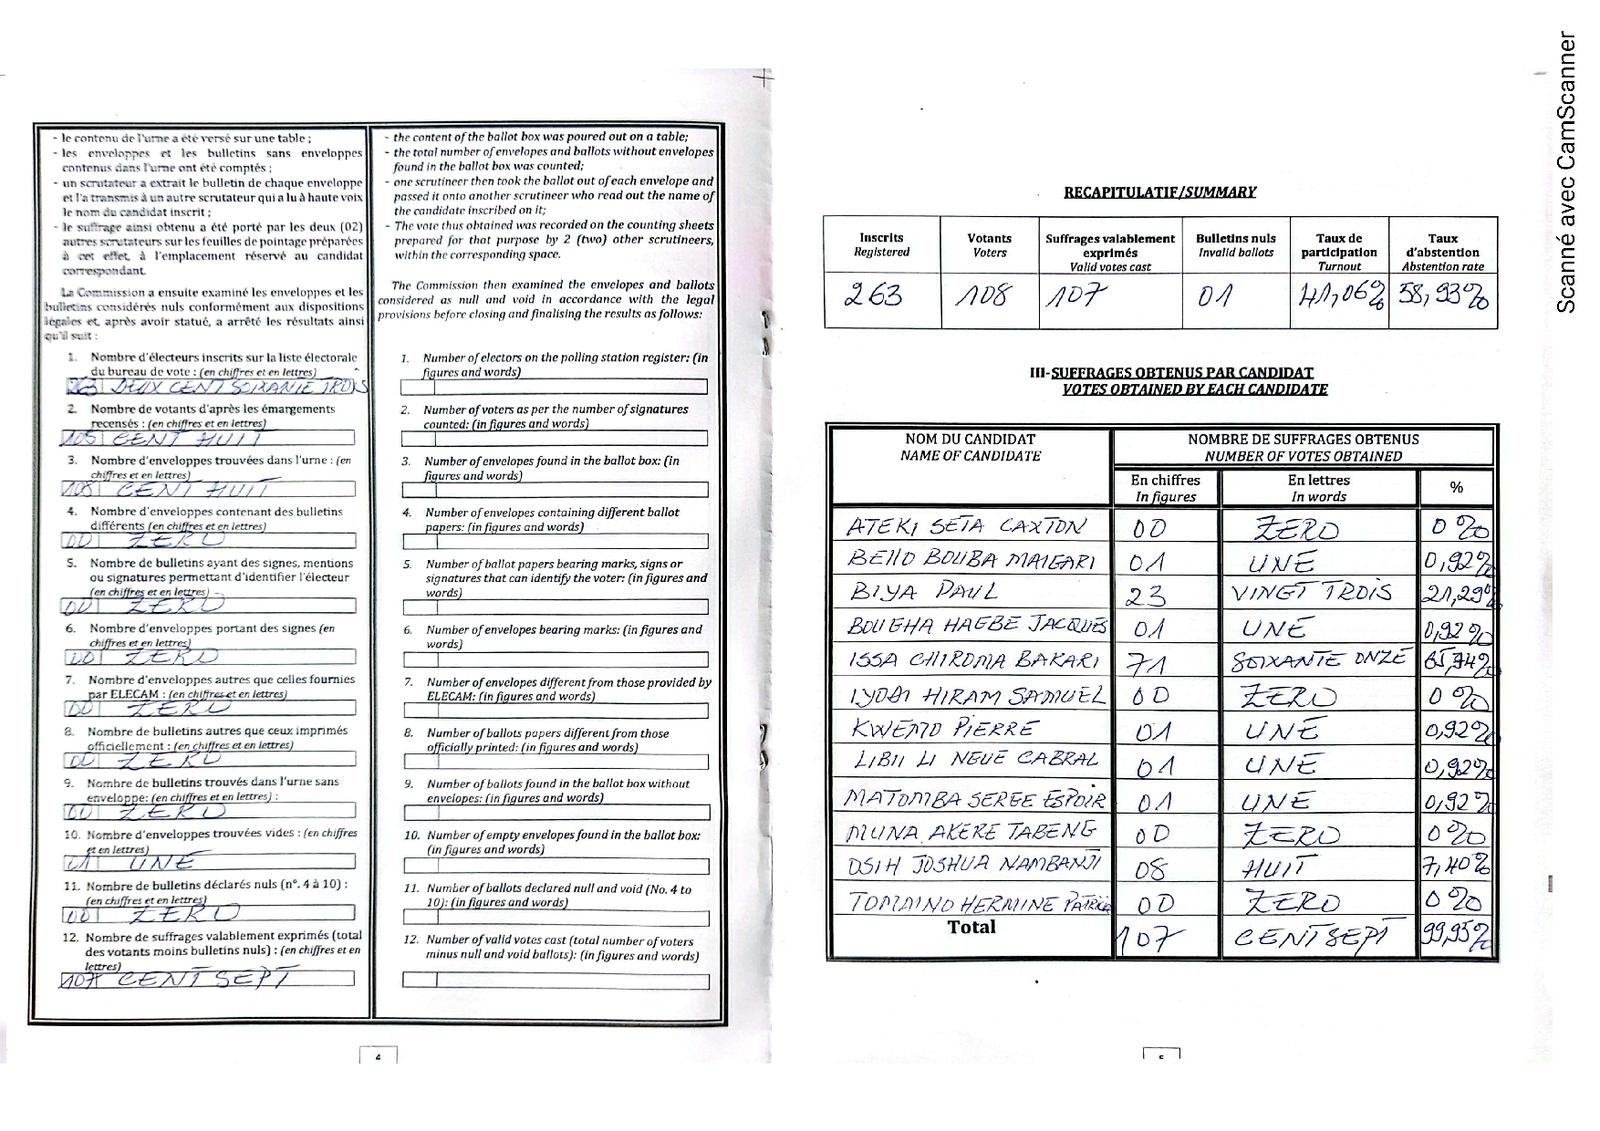 - le contenu de l'urne a été versé sur une table ;
- les enveloppes et les bulletins sans enveloppes
contenus dans l'urne ont été comptés ;
- un scrutateur a extrait le bulletin de chaque enveloppe
et l'a transmis à un autre scrutateur qui a lu à haute voix
le nom du candidat inscrit ;
- le suffrage ainsi obtenu a été porté par les deux (02)
autres scrutateurs sur les feuilles de pointage préparées
à cet effet, à l'emplacement réservé au candidat
correspondant.
La Commission a ensuite examiné les enveloppes et les
bulletins considérés nuls conformément aux dispositions
légales et, après avoir statué, a arrêté les résultats ainsi
qu'il suit :
1. Nombre d'électeurs inscrits sur la liste électorale
du bureau de vote : (en chiffres et en lettres)
263 DEUX CENT SOIXANTE TROIS
2. Nombre de votants d'après les émargements
recensés : (en chiffres et en lettres)
108 CENT HUIT
3. Nombre d'enveloppes trouvées dans l'urne : (en
chiffres et en lettres)
108 CENT HUIT
4. Nombre d'enveloppes contenant des bulletins
différents (en chiffres et en lettres)
00 ZERO
5. Nombre de bulletins ayant des signes, mentions
ou signatures permettant d'identifier l'électeur
(en chiffres et en lettres)
00 ZERO
6. Nombre d'enveloppes portant des signes (en
chiffres et en lettres)
00 ZERO
7. Nombre d'enveloppes autres que celles fournies
par ELECAM : (en chiffres et en lettres)
00 ZERO
8. Nombre de bulletins autres que ceux imprimés
officiellement : (en chiffres et en lettres)
00 ZERO
9. Nombre de bulletins trouvés dans l'urne sans
enveloppe: (en chiffres et en lettres) :
00 ZERO
10. Nombre d'enveloppes trouvées vides : (en chiffres
et en lettres)
01 UNE
11. Nombre de bulletins déclarés nuls (n°. 4 à 10) :
(en chiffres et en lettres)
00 ZERO
12. Nombre de suffrages valablement exprimés (total
des votants moins bulletins nuls) : (en chiffres et en
lettres)
107 CENT SEPT
- the content of the ballot box was poured out on a table;
- the total number of envelopes and ballots without envelopes
found in the ballot box was counted;
- one scrutineer then took the ballot out of each envelope and
passed it onto another scrutineer who read out the name of
the candidate inscribed on it;
- The vote thus obtained was recorded on the counting sheets
prepared for that purpose by 2 (two) other scrutineers,
within the corresponding space.
The Commission then examined the envelopes and ballots
considered as null and void in accordance with the legal
provisions before closing and finalising the results as follows:
1. Number of electors on the polling station register: (in
figures and words)
2. Number of voters as per the number of signatures
counted: (in figures and words)
3. Number of envelopes found in the ballot box: (in
figures and words)
4. Number of envelopes containing different ballot
papers: (in figures and words)
5. Number of ballot papers bearing marks, signs or
signatures that can identify the voter: (in figures and
words)
6. Number of envelopes bearing marks: (in figures and
words)
7. Number of envelopes different from those provided by
ELECAM: (in figures and words)
8. Number of ballots papers different from those
officially printed: (in figures and words)
9. Number of ballots found in the ballot box without
envelopes: (in figures and words)
10. Number of empty envelopes found in the ballot box:
(in figures and words)
11. Number of ballots declared null and void (No. 4 to
10): (in figures and words)
12. Number of valid votes cast (total number of voters
minus null and void ballots): (in figures and words)
4
RECAPITULATIF/SUMMARY
Inscrits Registered | Votants Voters | Suffrages valablement exprimés Valid votes cast | Bulletins nuls Invalid ballots | Taux de participation Turnout | Taux d'abstention Abstention rate
263 108 107 01 41,06% 58,93%
III-SUFFRAGES OBTENUS PAR CANDIDAT
VOTES OBTAINED BY EACH CANDIDATE
NOM DU CANDIDAT NOMBRE DE SUFFRAGES OBTENUS
NAME OF CANDIDATE NUMBER OF VOTES OBTAINED
En chiffres En lettres %
In figures In words
ATEKI SETA CAXTON 00 ZERO 0%
BELLO BOUBA MAIGARI 01 UNE 0,92%
BIYA PAUL 23 VINGT TROIS 21,29%
BOUGHA HAGBE JACQUES 01 UNE 0,92%
ISSA CHIROMA BAKARI 71 SOIXANTE ONZE 65,74%
IYODI HIRAM SAMUEL 00 ZERO 0%
KWEMO PIERRE 01 UNE 0,92%
LIBII LI NGUE CABRAL 01 UNE 0,92%
MATOMBA SERGE ESPOIR 01 UNE 0,92%
MUNA AKERE TABENG 00 ZERO 0%
OSIH JOSHUA NAMBANJI 08 HUIT 7,40%
TOMAINO HERMINE PATRICIA 00 ZERO 0%
Total 107 CENT SEPT 99,95%
5
Scanné avec CamScanner